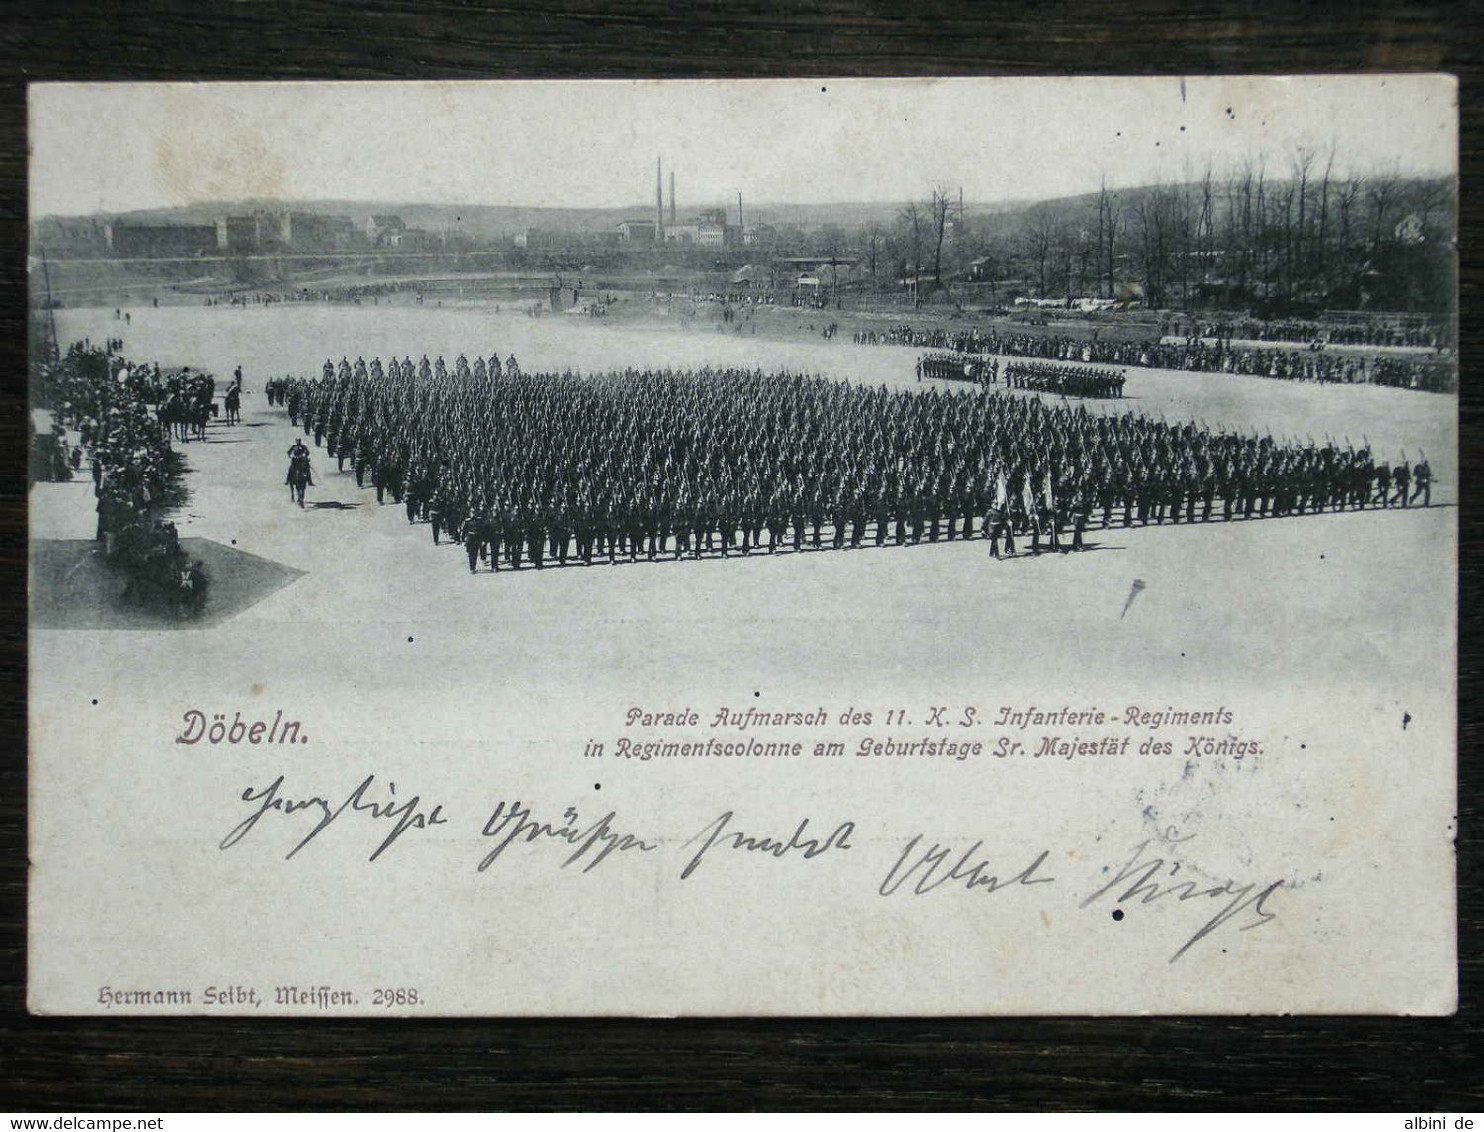 Döbeln.
Parade Aufmarsch des 11. K. S. Infanterie-Regiments
in Regimentscolonne am Geburtstage Sr. Majestät des Königs.
Herzliche Grüße sendet Albert
Hermann Seibt, Meissen. 2988.
delcampe.net
albini de